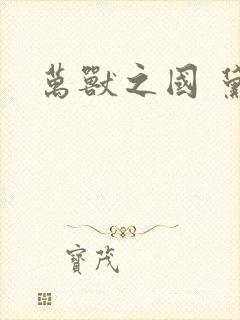 萬獸之國
寶茂